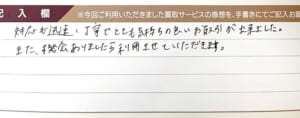 記入欄 ※今回ご利用いただきました買取サービスの感想を、手書きにてご記入お
対応も迅速、丁寧でとても気持ちの良いお取引が出来ました。
また、機会ありましたら利用させていただきます。